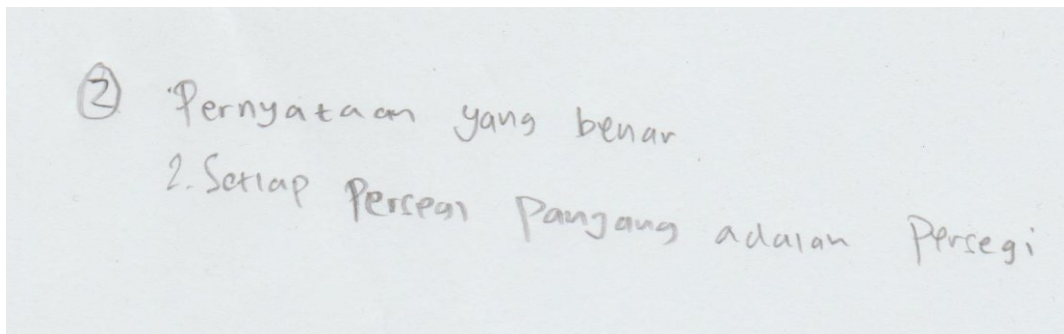 ② Pernyataan yang benar
2. Setiap Persegi Panjang adalah Persegi